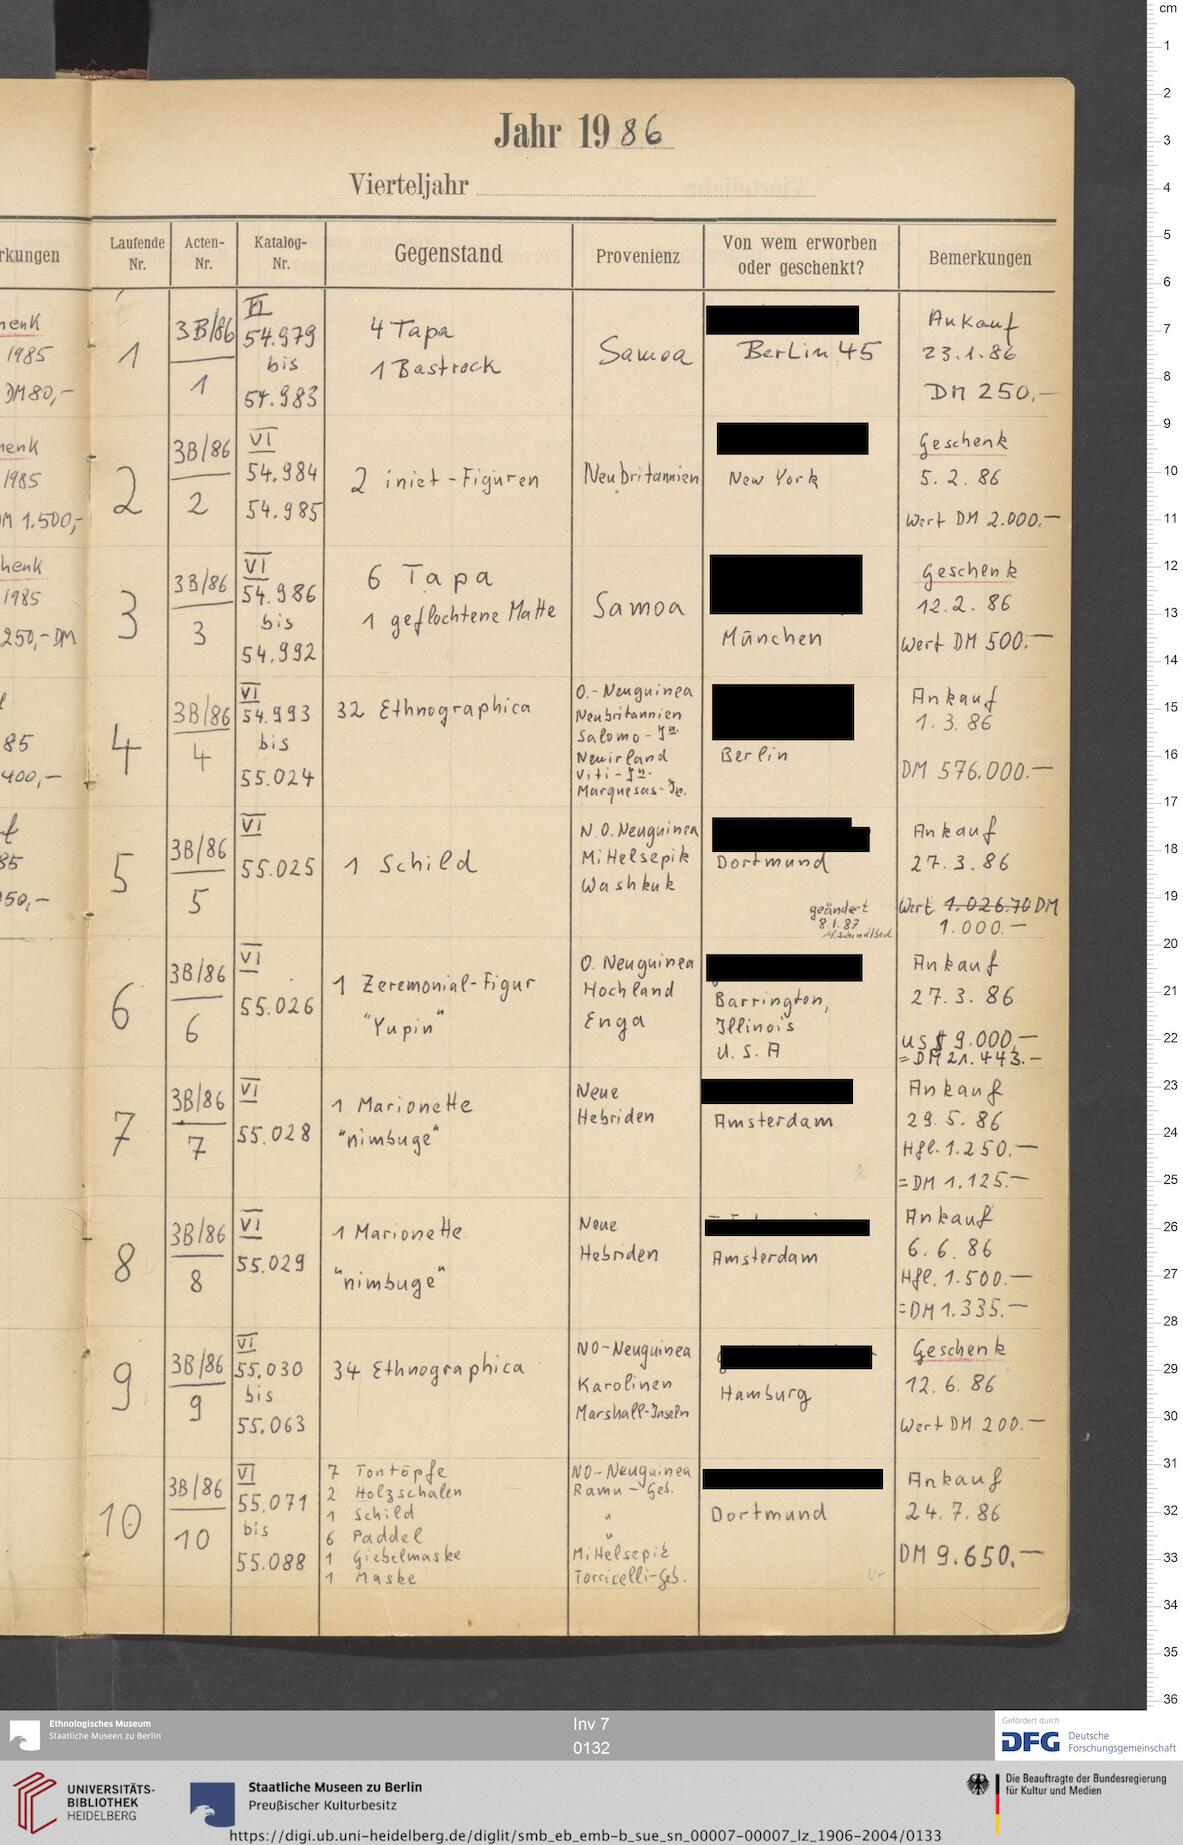 Jahr 1986
Vierteljahr
rkungen
Laufende Nr.
Acten-Nr.
Katalog-Nr.
Gegenstand
Provenienz
Von wem erworben oder geschenkt?
Bemerkungen
henk
1985
DM 80,-
1
3B/86
1
VI
54.979
bis
54.983
4 Tapa
1 Bastrock
Samoa
Berlin 45
Ankauf
23.1.86
DM 250.-
henk
1985
DM 1.500,-
2
3B/86
2
VI
54.984
54.985
2 iniet-Figuren
Neubritannien
New York
Geschenk
5. 2. 86
Wert DM 2.000.-
henk
1985
250,- DM
3
3B/86
3
VI
54.986
bis
54.992
6 Tapa
1 geflochtene Matte
Samoa
München
Geschenk
12.2.86
Wert DM 500.-
85
400,-
4
3B/86
4
VI
54.993
bis
55.024
32 Ethnographica
O.-Neuguinea
Neubritannien
Salomo-Jn.
Neuirland
Viti-Jn.
Marquesas-Jn.
Berlin
Ankauf
1.3.86
DM 576.000.-
f
85
50,-
5
3B/86
5
VI
55.025
1 Schild
N.O. Neuguinea
Mittelsepik
Washkuk
Dortmund
geändert
8.1.87
Ankauf
27.3.86
Wert 1.026.70 DM
1.000.-
6
3B/86
6
VI
55.026
1 Zeremonial-Figur
"Yupin"
O. Neuguinea
Hochland
Enga
Barrington,
Illinois
U.S.A
Ankauf
27.3.86
US $ 9.000,-
= DM 21.443.-
7
3B/86
7
VI
55.028
1 Marionette
"nimbuge"
Neue
Hebriden
Amsterdam
Ankauf
29.5.86
Hfl. 1.250.-
= DM 1.125.-
8
3B/86
8
VI
55.029
1 Marionette
"nimbuge"
Neue
Hebriden
Amsterdam
Ankauf
6.6.86
Hfl. 1.500.-
= DM 1.335.-
9
3B/86
9
VI
55.030
bis
55.063
34 Ethnographica
NO-Neuguinea
Karolinen
Marshall-Inseln
Hamburg
Geschenk
12.6.86
Wert DM 200.-
10
3B/86
10
VI
55.071
bis
55.088
7 Tontöpfe
2 Holzschalen
1 Schild
6 Paddel
1 Giebelmaske
1 Maske
NO-Neuguinea
Ramu-Geb.
"
"
Mittelsepik
Torricelli-Geb.
Dortmund
Ankauf
24.7.86
DM 9.650.-
cm
1
2
3
4
5
6
7
8
9
10
11
12
13
14
15
16
17
18
19
20
21
22
23
24
25
26
27
28
29
30
31
32
33
34
35
36
Ethnologisches Museum
Staatliche Museen zu Berlin
Inv 7
0132
Gefördert durch
DFG Deutsche
Forschungsgemeinschaft
UNIVERSITÄTS-
BIBLIOTHEK
HEIDELBERG
Staatliche Museen zu Berlin
Preußischer Kulturbesitz
Die Beauftragte der Bundesregierung
für Kultur und Medien
https://digi.ub.uni-heidelberg.de/diglit/smb_eb_emb-b_sue_sn_00007-00007_lz_1906-2004/0133